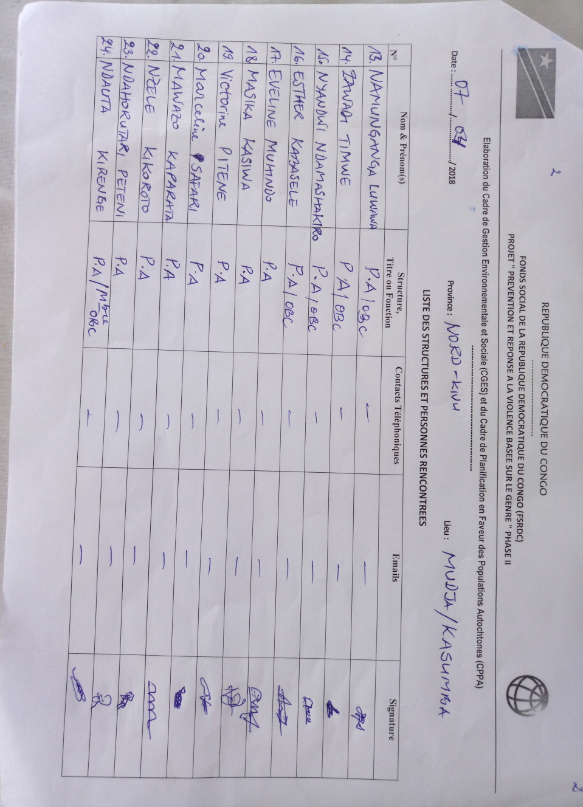 2
2
REPUBLIQUE DEMOCRATIQUE DU CONGO
FONDS SOCIAL DE LA REPUBLIQUE DEMOCRATIQUE DU CONGO (FSRDC)
PROJET " PREVENTION ET REPONSE A LA VIOLENCE BASEE SUR LE GENRE " PHASE II
Elaboration du Cadre de Gestion Environnementale et Sociale (CGES) et du Cadre de Planification en Faveur des Populations Autochtones (CPPA)
Date : 07 / 04 / 2018 Province : NORD-KIVU Lieu : MUDJA/KASUMBA
LISTE DES STRUCTURES ET PERSONNES RENCONTREES
N° Nom & Prénom(s) Structure, Titre ou Fonction Contacts Téléphoniques Emails Signature
13. NAMUNGANGA LUWAWA P.A/OBC — —
14. ZAWADI TIMWE P.A/OBC — —
15. NYANDWI NDAMASHAKIRO P.A/OBC — —
16. ESTHER KABASELE P.A/OBC — —
17. EVELINE MUHINDO P.A — —
18. MASIKA KASIWA P.A — —
19. VICTORINE PITENE P.A — —
20. Marceline SAFARI P.A — —
21. MAWAZO KAPARATA P.A — —
22. NZELE KIKOROTO P.A — —
23. NDAHORUTARI PETENI P.A — —
24. NDAUTA KIRENGE P.A/Mbre OBC — —